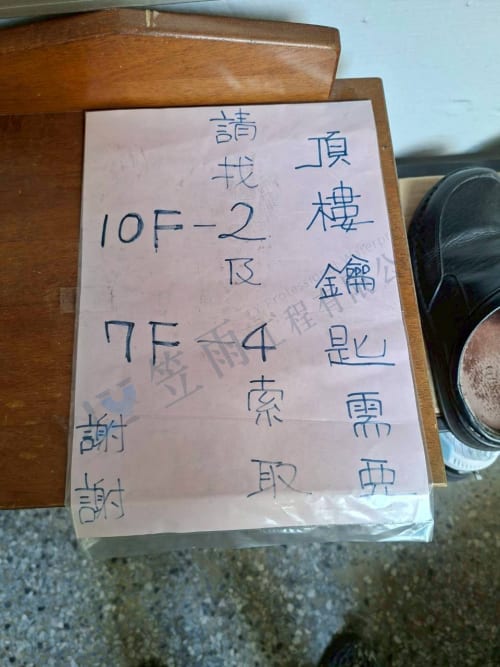 頂樓鑰匙需要
請找10F-2及7F-4索取
謝謝
笠雨工程有限公
Professional